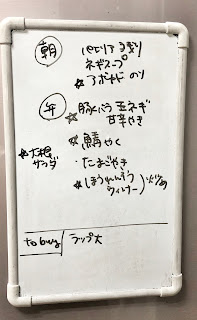 朝
ネギスープ
☆アボカド のり
午
豚バラ 玉ネギ
☆ 甘辛やき
☆鯖やく
☆大根
サラダ
・たまごやき
☆ほうれんそう
ウィルナー)炒め
to buy ラップ大